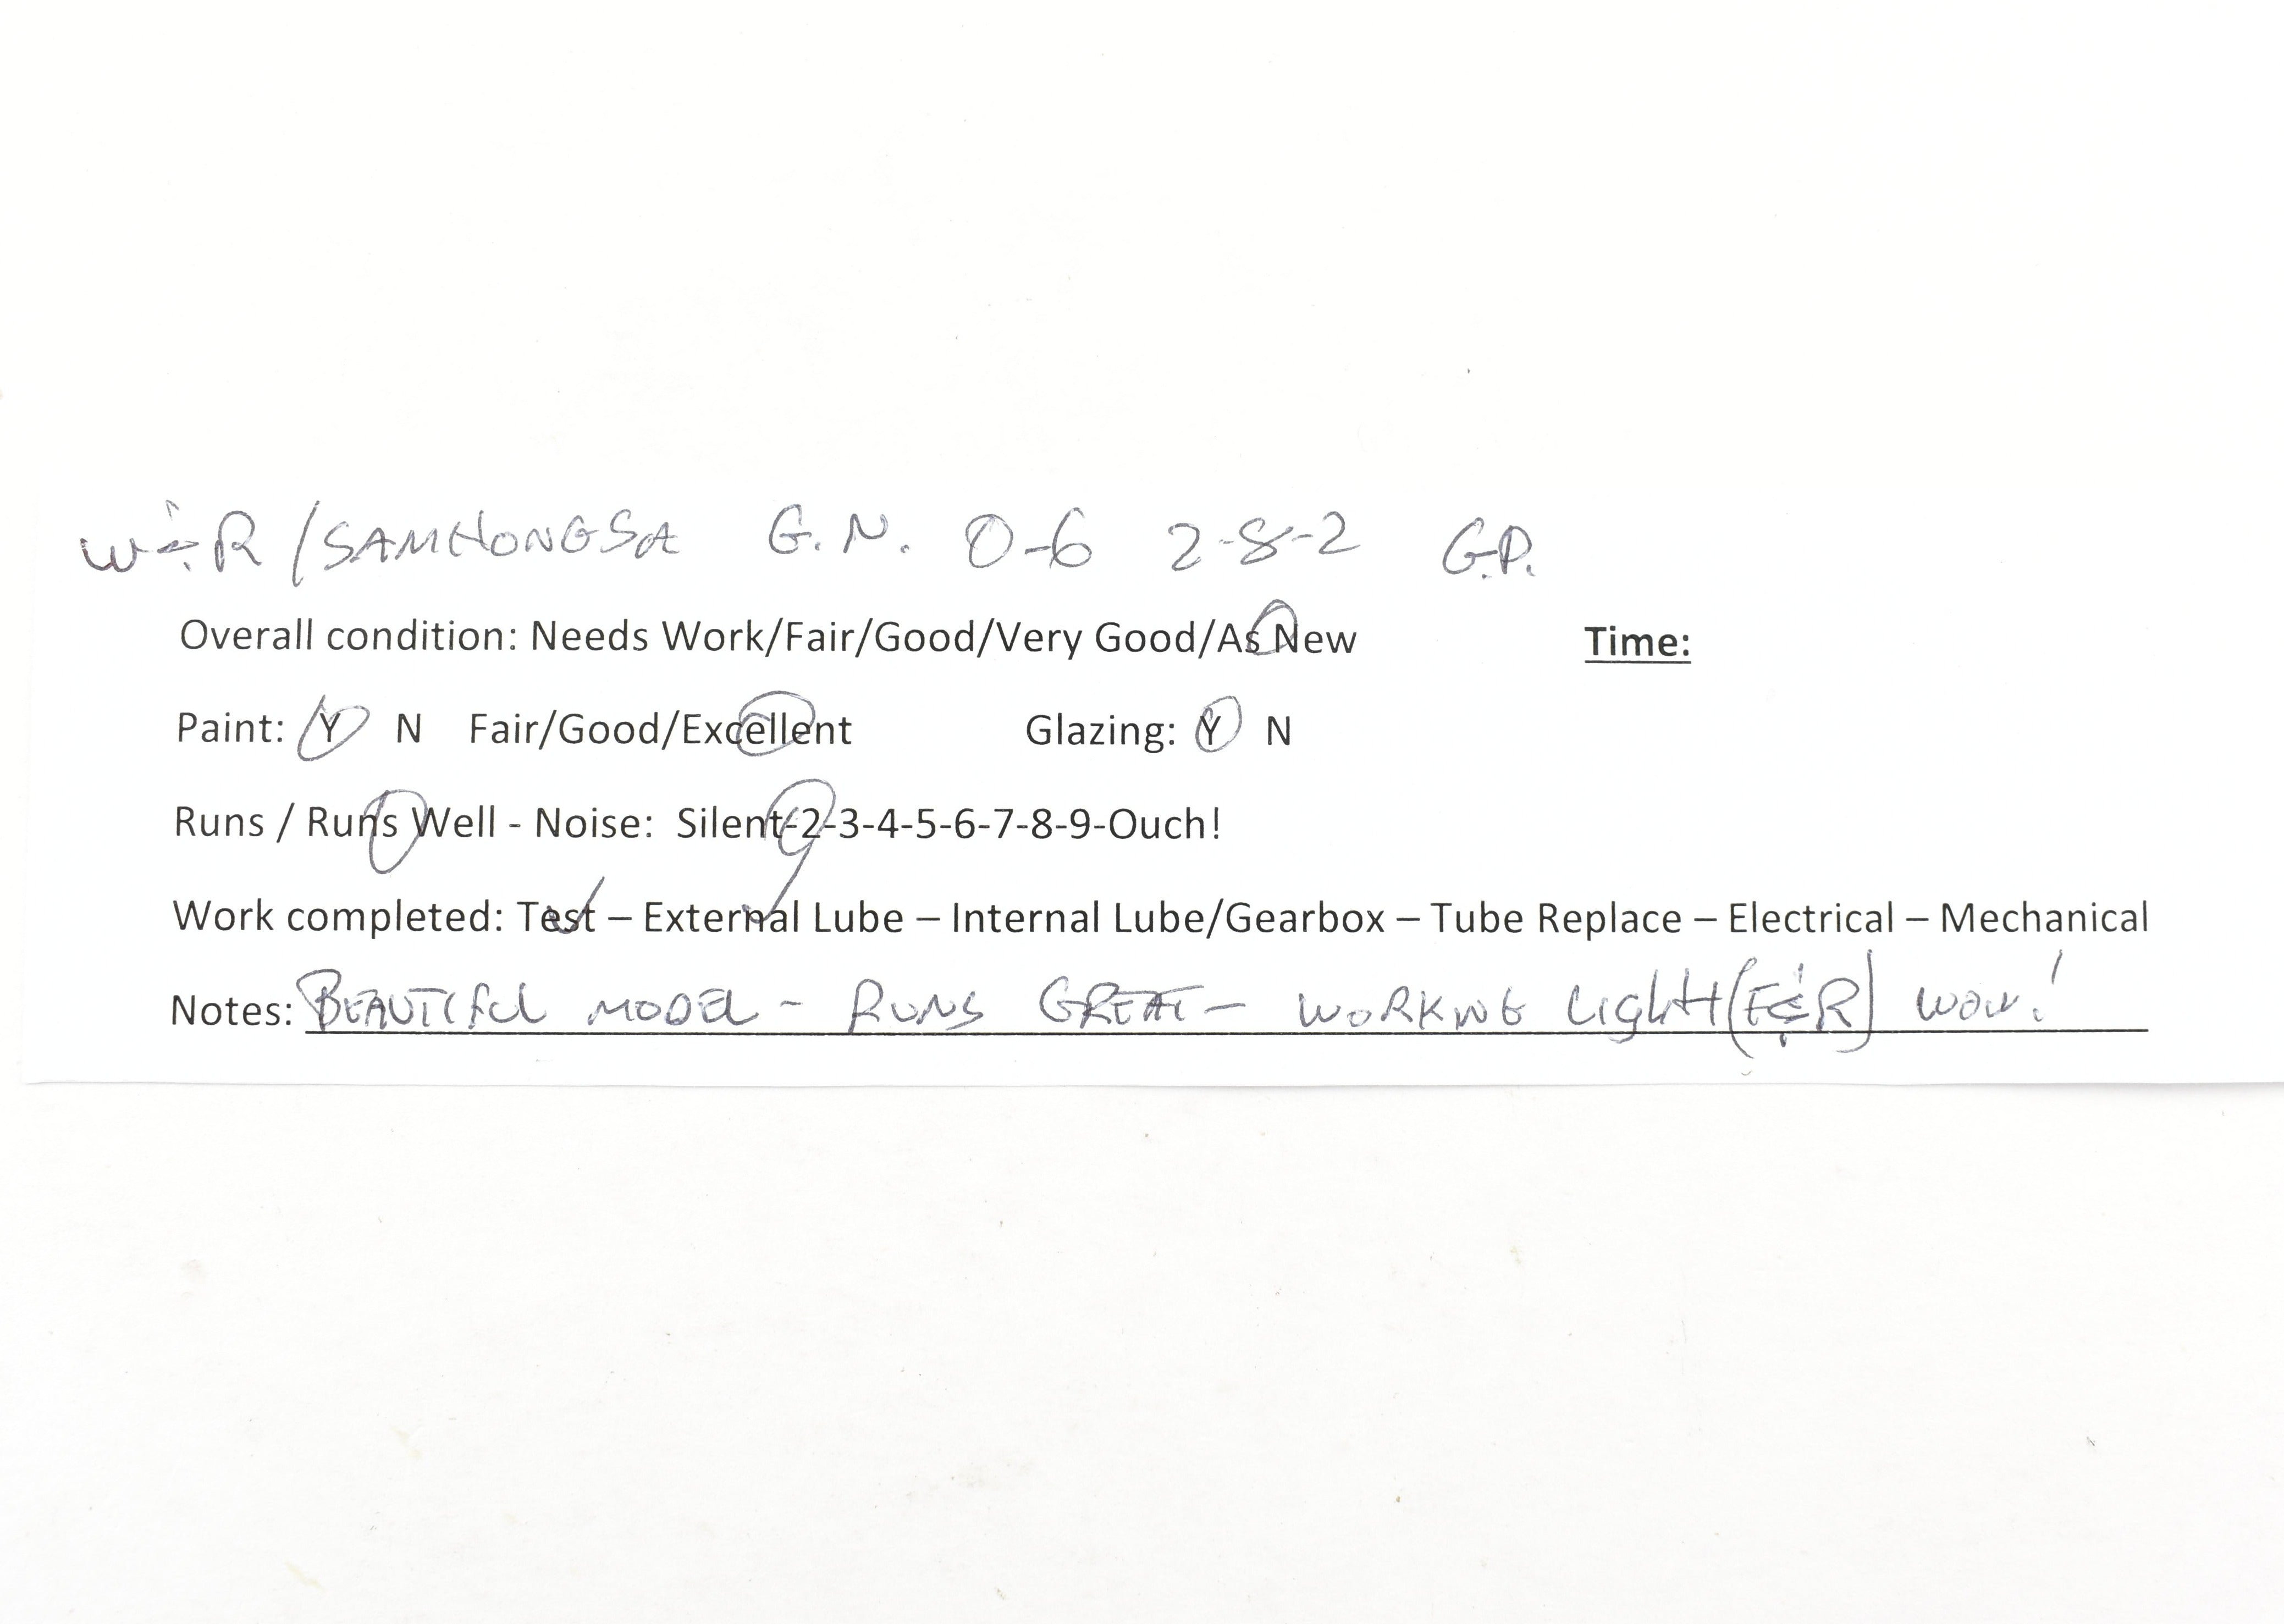 W&R/SAMHONGSA G.N. O-6 2-8-2 G.P.
Overall condition: Needs Work/Fair/Good/Very Good/As New Time:
Paint: Y N Fair/Good/Excellent Glazing: Y N
Runs / Runs Well - Noise: Silent-2-3-4-5-6-7-8-9-Ouch!
Work completed: Test – External Lube – Internal Lube/Gearbox – Tube Replace – Electrical – Mechanical
Notes: BEAUTIFUL MODEL - RUNS GREAT - WORKING LIGHT (F&R) WOW!